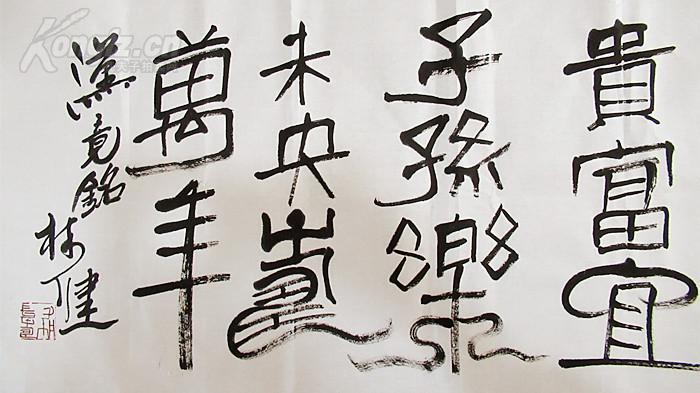 貴富宜
子孫樂
未央
萬年
漢竟銘
林健
Kongfz.cn